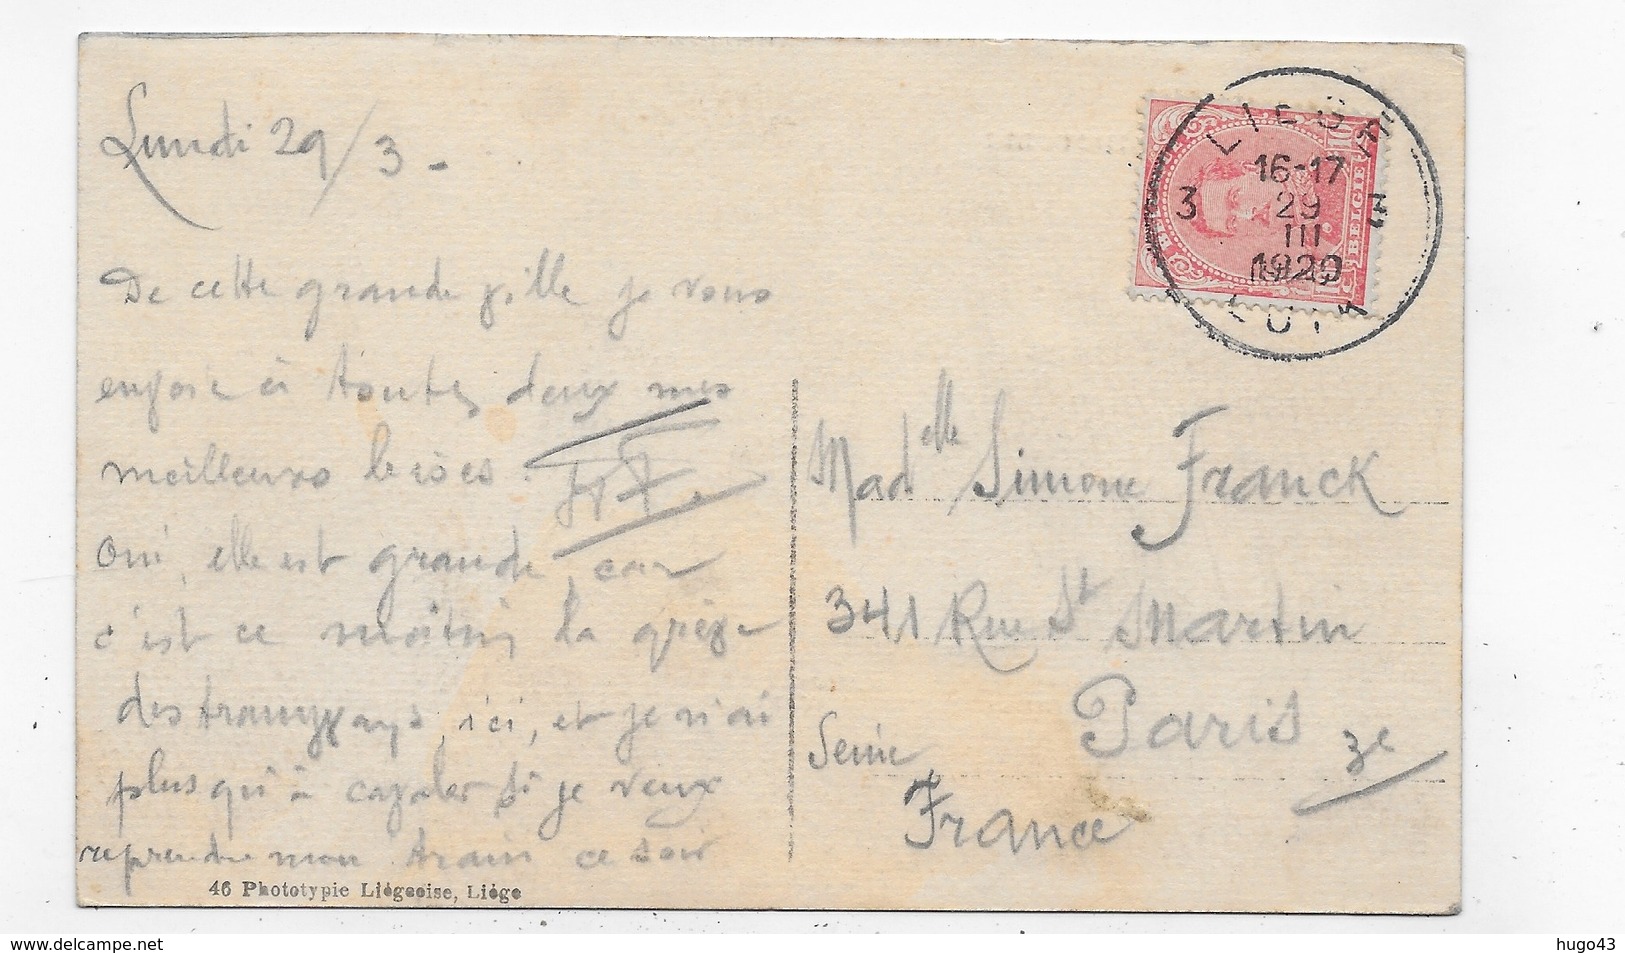 Lundi 29/3 -
De cette grande ville je vous
envoie à toutes deux mes
meilleures bises.
Oui, elle est grande, car
c'est ce matin la grève
des tramways, ici, et je n'ai
plus qu'à cavaler si je veux
reprendre mon train ce soir
46 Phototypie Liégeoise, Liége
LIEGE
16-17
3 29 3
III
1920
LUIK
BELGIE
Madelle Simone Franck
341 Rue St Martin
Paris 3e
Seine
France
delcampe.net
hugo43